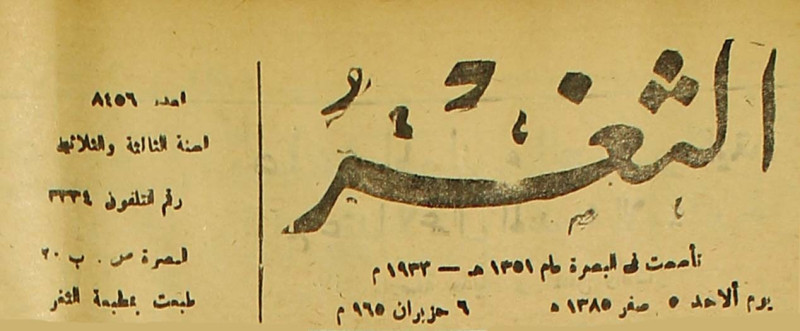 الثغر
تأسست في البصرة عام ١٣٥١ هـ — ١٩٣٣ م
يوم ألاحد ٥ صفر ١٣٨٥ ه ٦ حزيران ٩٦٥ م
العدد ٨٤٥٦
السنة الثالثة والثلاثين
رقم التلفون ٣٣٣٤
البصرة ص . ب ٢٠
طبعت بمطبعة الثغر